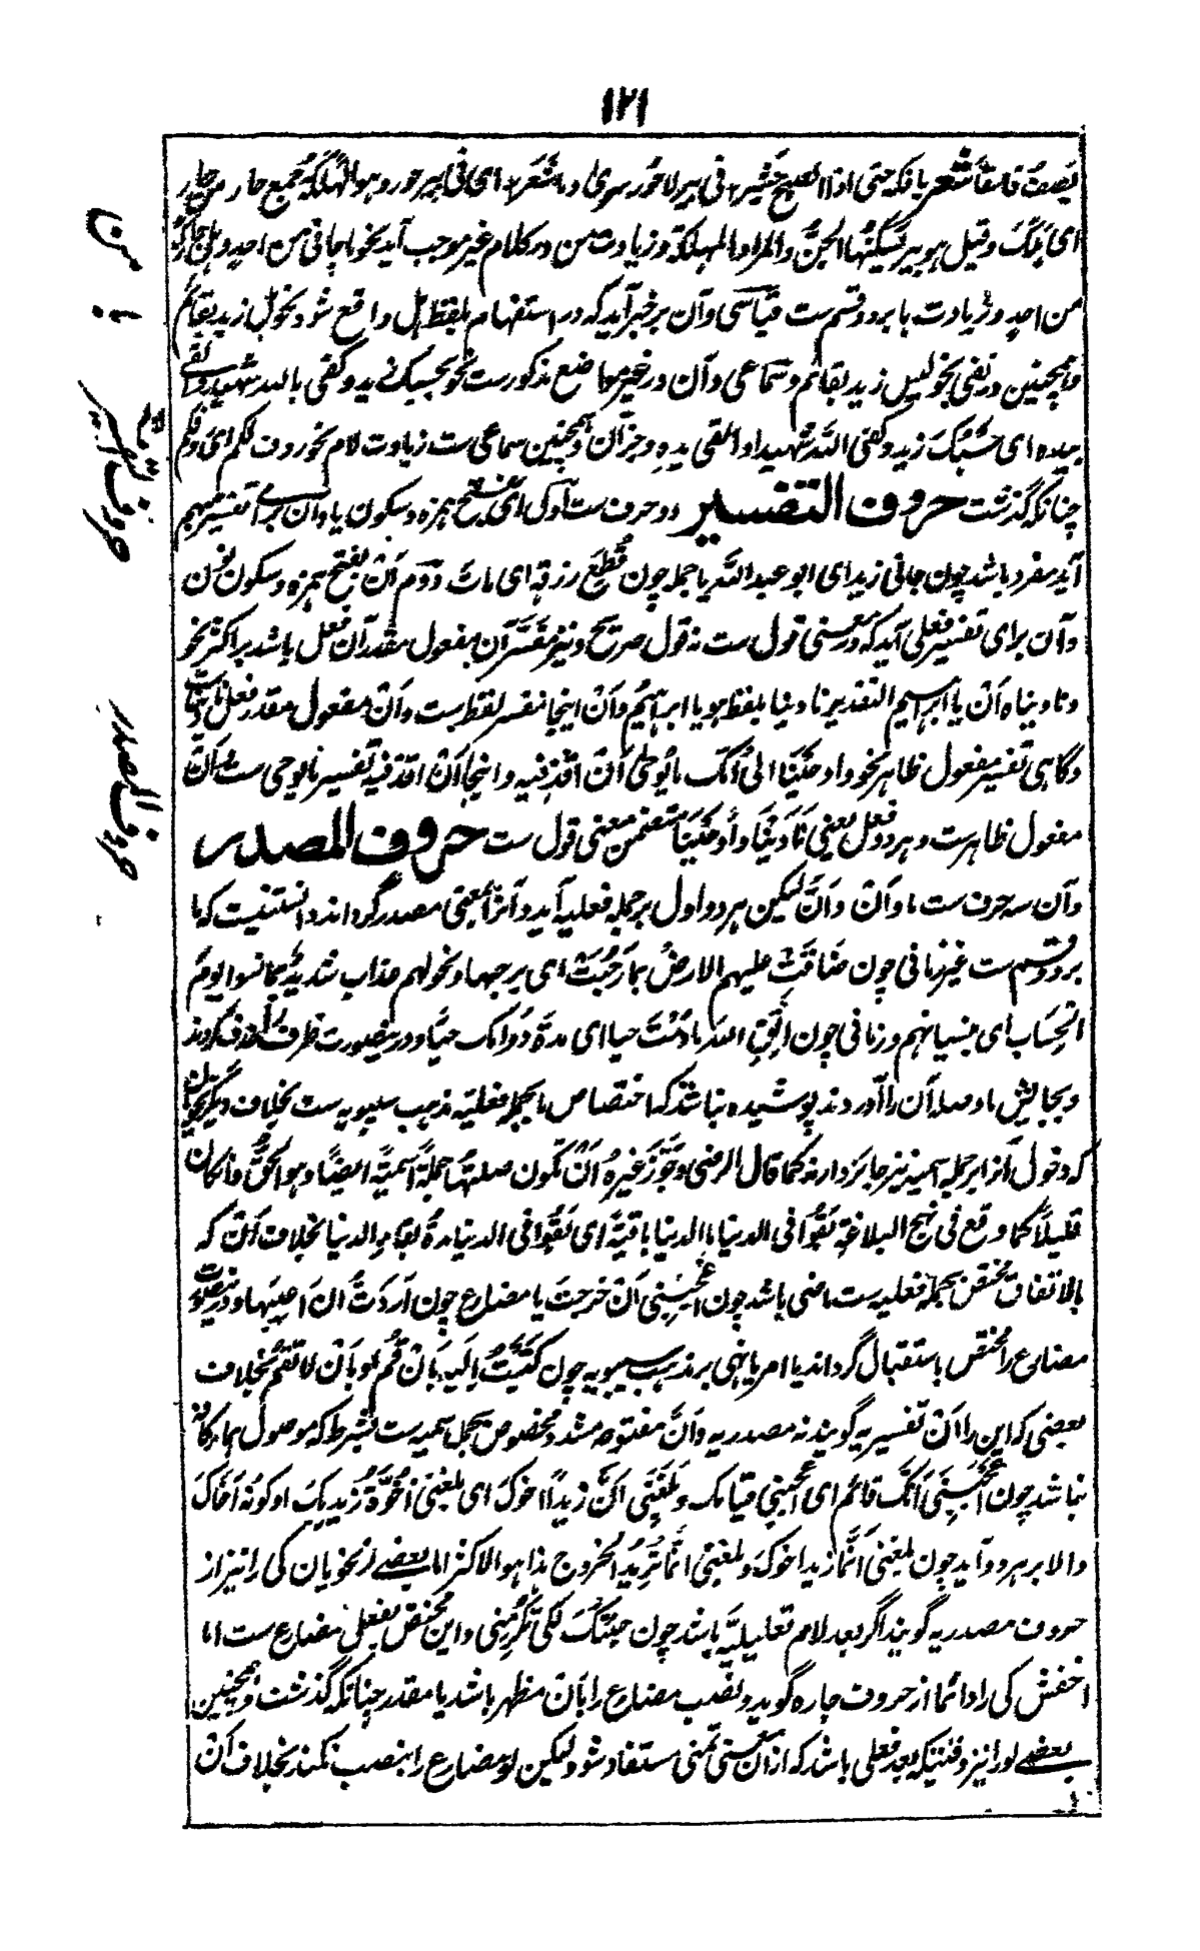 ۱۲۱
یصف فاسقا شعر بافکه حتی اذا الصبح حشر ٭ فی بیر لاحور سری و ما شعر ٭ ای فی بیر حور و هو الهلکة جمع حار من حار
ای هلک و قیل هو بیر تسکنها الجن و المراد المهلکة و زیادت من در کلام غیر موجب آید نحو ما جاءنی من احد و هل جاءک
من احد و زیادت با بر دو قسم ست قیاسی و آن بر خبر آید که در استفهام بلفظ هل واقع شود نحو هل زید بقائم
و همچنین در نفی نحو لیس زید بقائم و سماعی و آن در غیر مواضع مذکور ست نحو بحسبک زید و کفی بالله شهیدا و القی
بیده ای حسبک زید و کفی الله شهیدا و القی یده و جز آن و همچنین سماعی ست زیادت لام نحو ردف لکم ای ردفکم
چنانکه گذشت حروف التفسیر دو حرف ست اول ای بفتح همزه و سکون یا و آن برای تفسیر مبهم
آید مفرد باشد چون جاءنی زید ای ابو عبد الله یا جمله چون قطع رزقه ای مات دوم ان بفتح همزه و سکون نون
و آن برای تفسیر فعلی آید که در معنی قول ست نه قول صریح و نیز مفسر آن مفعول مقدر آن فعل باشد بر اکثر نحو
و نادیناه ان یا ابراهیم التقدیر نادینا بلفظ هو یا ابراهیم و ان اینجا مفسر لفظ ست و آن مفعول مقدر فعل نادینا ست
و گاهی تفسیر مفعول ظاهر نحو و اوحینا الی امک ما یوحی ان اقذفیه و اینجا ان اقذفیه تفسیر ما یوحی ست که آن
مفعول ظاهر ست و هر دو فعل یعنی نادینا و اوحینا متضمن معنی قول ست حروف المصدر
و آن سه حرف ست ما و ان و انّ لیکن هر دو اول بر جمله فعلیه آید و آنرا بمعنی مصدر گرداند دانستنیست که ما
بر دو قسم ست غیر زمانی چون ضاقت علیهم الارض بما رحبت ای برحبها و نحو لهم عذاب شدید بما نسوا یوم
الحساب ای بنسیانهم و زمانی چون اتق الله ما دمت حیا ای مدة دوامک حیا و درینصورت ظرف را حذف کردند
و بجایش ما و صله آن را آوردند پوشیده نباشد که اختصاص ما بجمله فعلیه مذهب سیبویه ست بخلاف دیگر نحویان
که دخول آنرا بر جمله اسمیه نیز جائز دارند کما قال الرضی و جوز غیره ان تکون صلتها جملة اسمیة ایضا و هو الحق و ان کان
قلیلا کما وقع فی نهج البلاغة بقوا فی الدنیا ما الدنیا باقیة ای بقوا فی الدنیا مدة بقاء الدنیا بخلاف ان که
بالاتفاق مختص بجمله فعلیه ست ماضی باشد چون اعجبنی ان خرجت یا مضارع چون اردت ان اعیبها و درینصورت
مضارع را مختص باستقبال گرداند یا امر یا نهی بر مذهب سیبویه چون کتبت الیه بان قم او بان لا تقم بخلاف
بعضی که این را ان تفسیریه گویند نه مصدریه و ان مفتوحه مشدد مخصوص بجمله اسمیه ست بشرط که موصول بما کافه
نباشد چون اعجبنی انک قائم ای اعجبنی قیامک و بلغنی ان زیدا اخوک ای بلغنی اخوة زید بک او کونه اخاک
و الا بر هر دو آید چون بلغنی انما زیدا اخوک و بلغنی انما ترید الخروج هذا هو الاکثر اما بعضے از نحویان کی را نیز از
حروف مصدریه گویند اگر بعد لام تعلیلیه باشد چون جئتک لکی تکرمنی و این مختص بفعل مضارع ست اما
اخفش کی را دائما از حروف جاره گوید و نصب مضارع را بان مظهر باشد یا مقدر چنانکه گذشت و همچنین
بعضے لو را نیز وقتیکه بعد فعلی باشد که ازان معنی تمنی مستفاد شود لیکن لو مضارع را نصب نکند بخلاف ان
من
با
حروف التفسیر
حروف المصدر